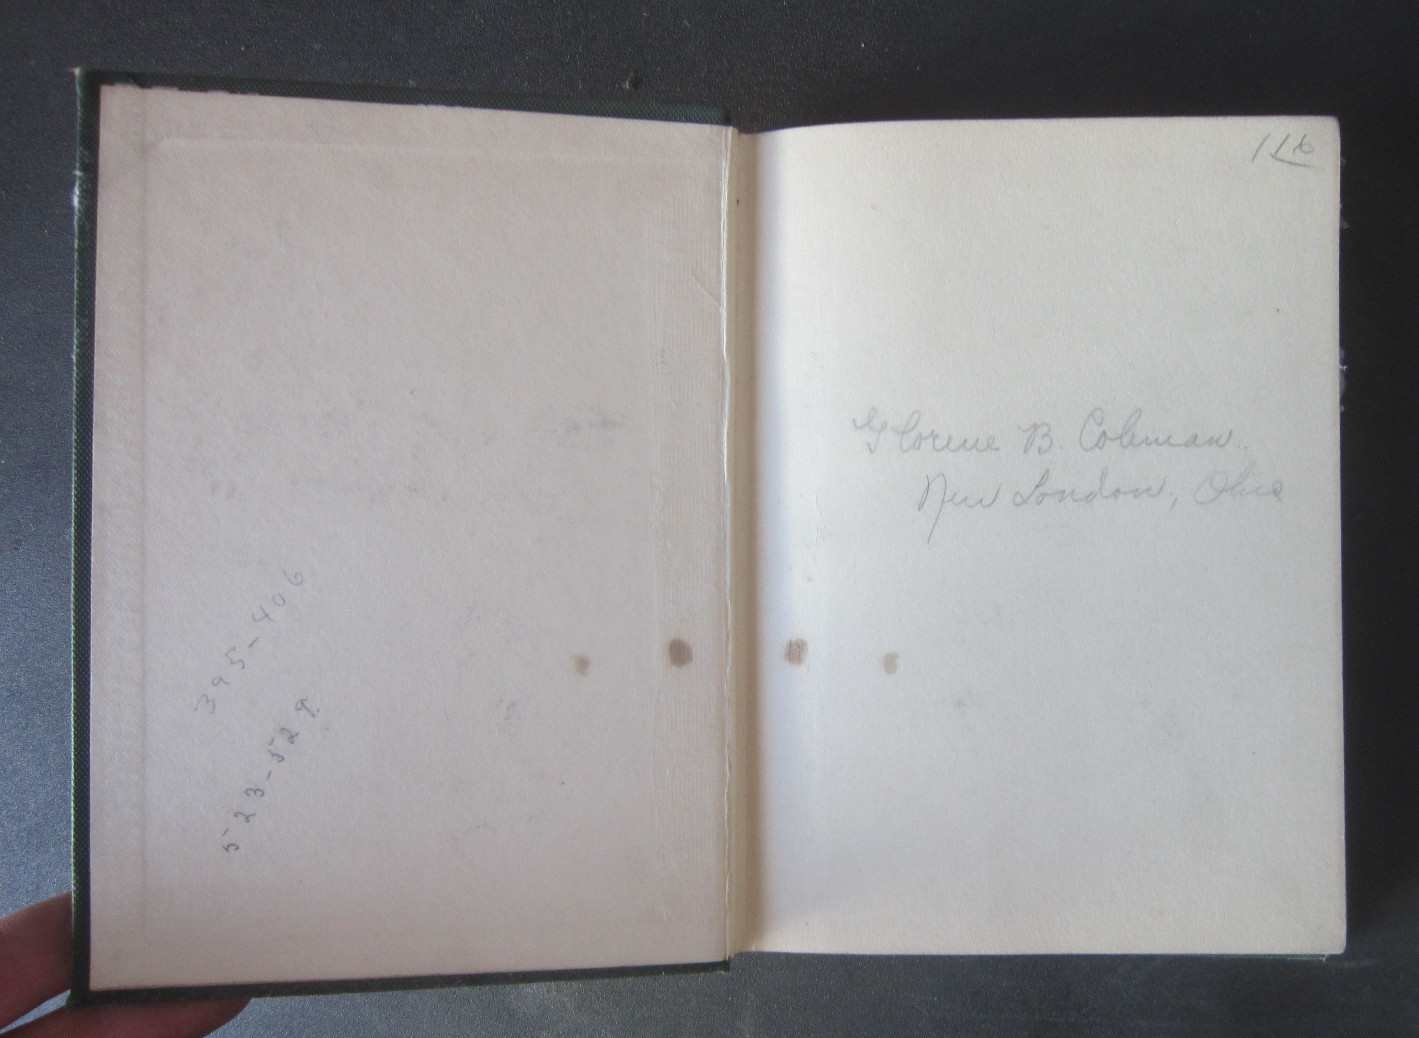 395-406
523-529
Florene B. Coleman.
New London, Ohio